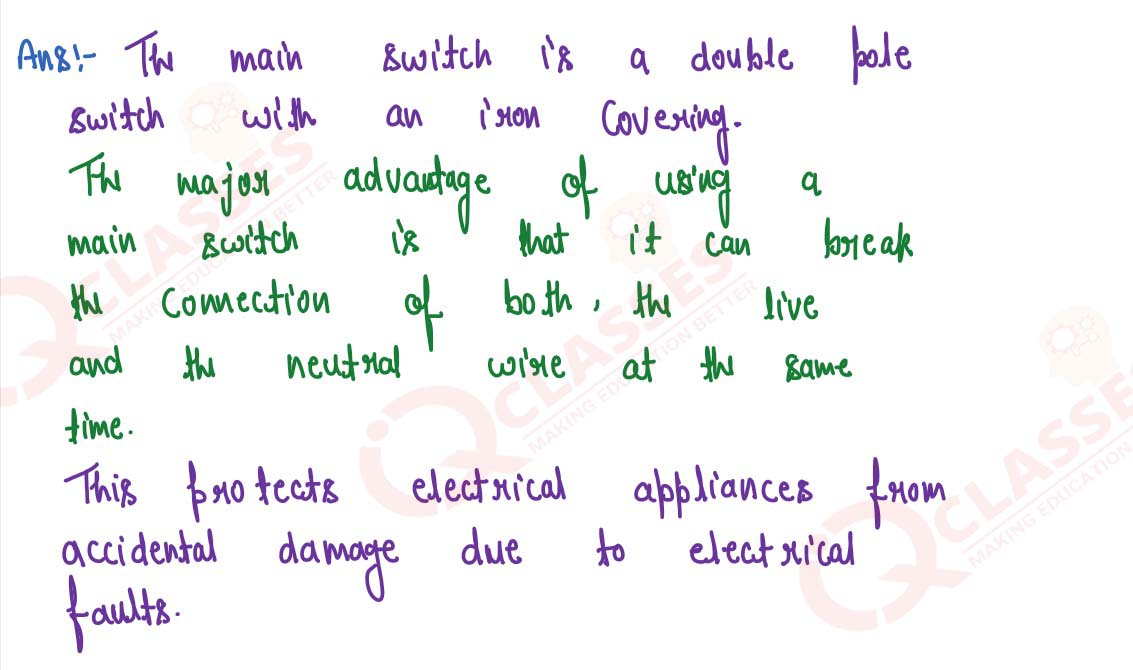 Ans:- The main switch is a double pole
switch with an iron covering.
The major advantage of using a
main switch is that it can break
the connection of both, the live
and the neutral wire at the same
time.
This protects electrical appliances from
accidental damage due to electrical
faults.
CLASSES
MAKING EDUCATION BETTER
CLASSES
MAKING EDUCATION BETTER
CLASSES
MAKING EDUCATION